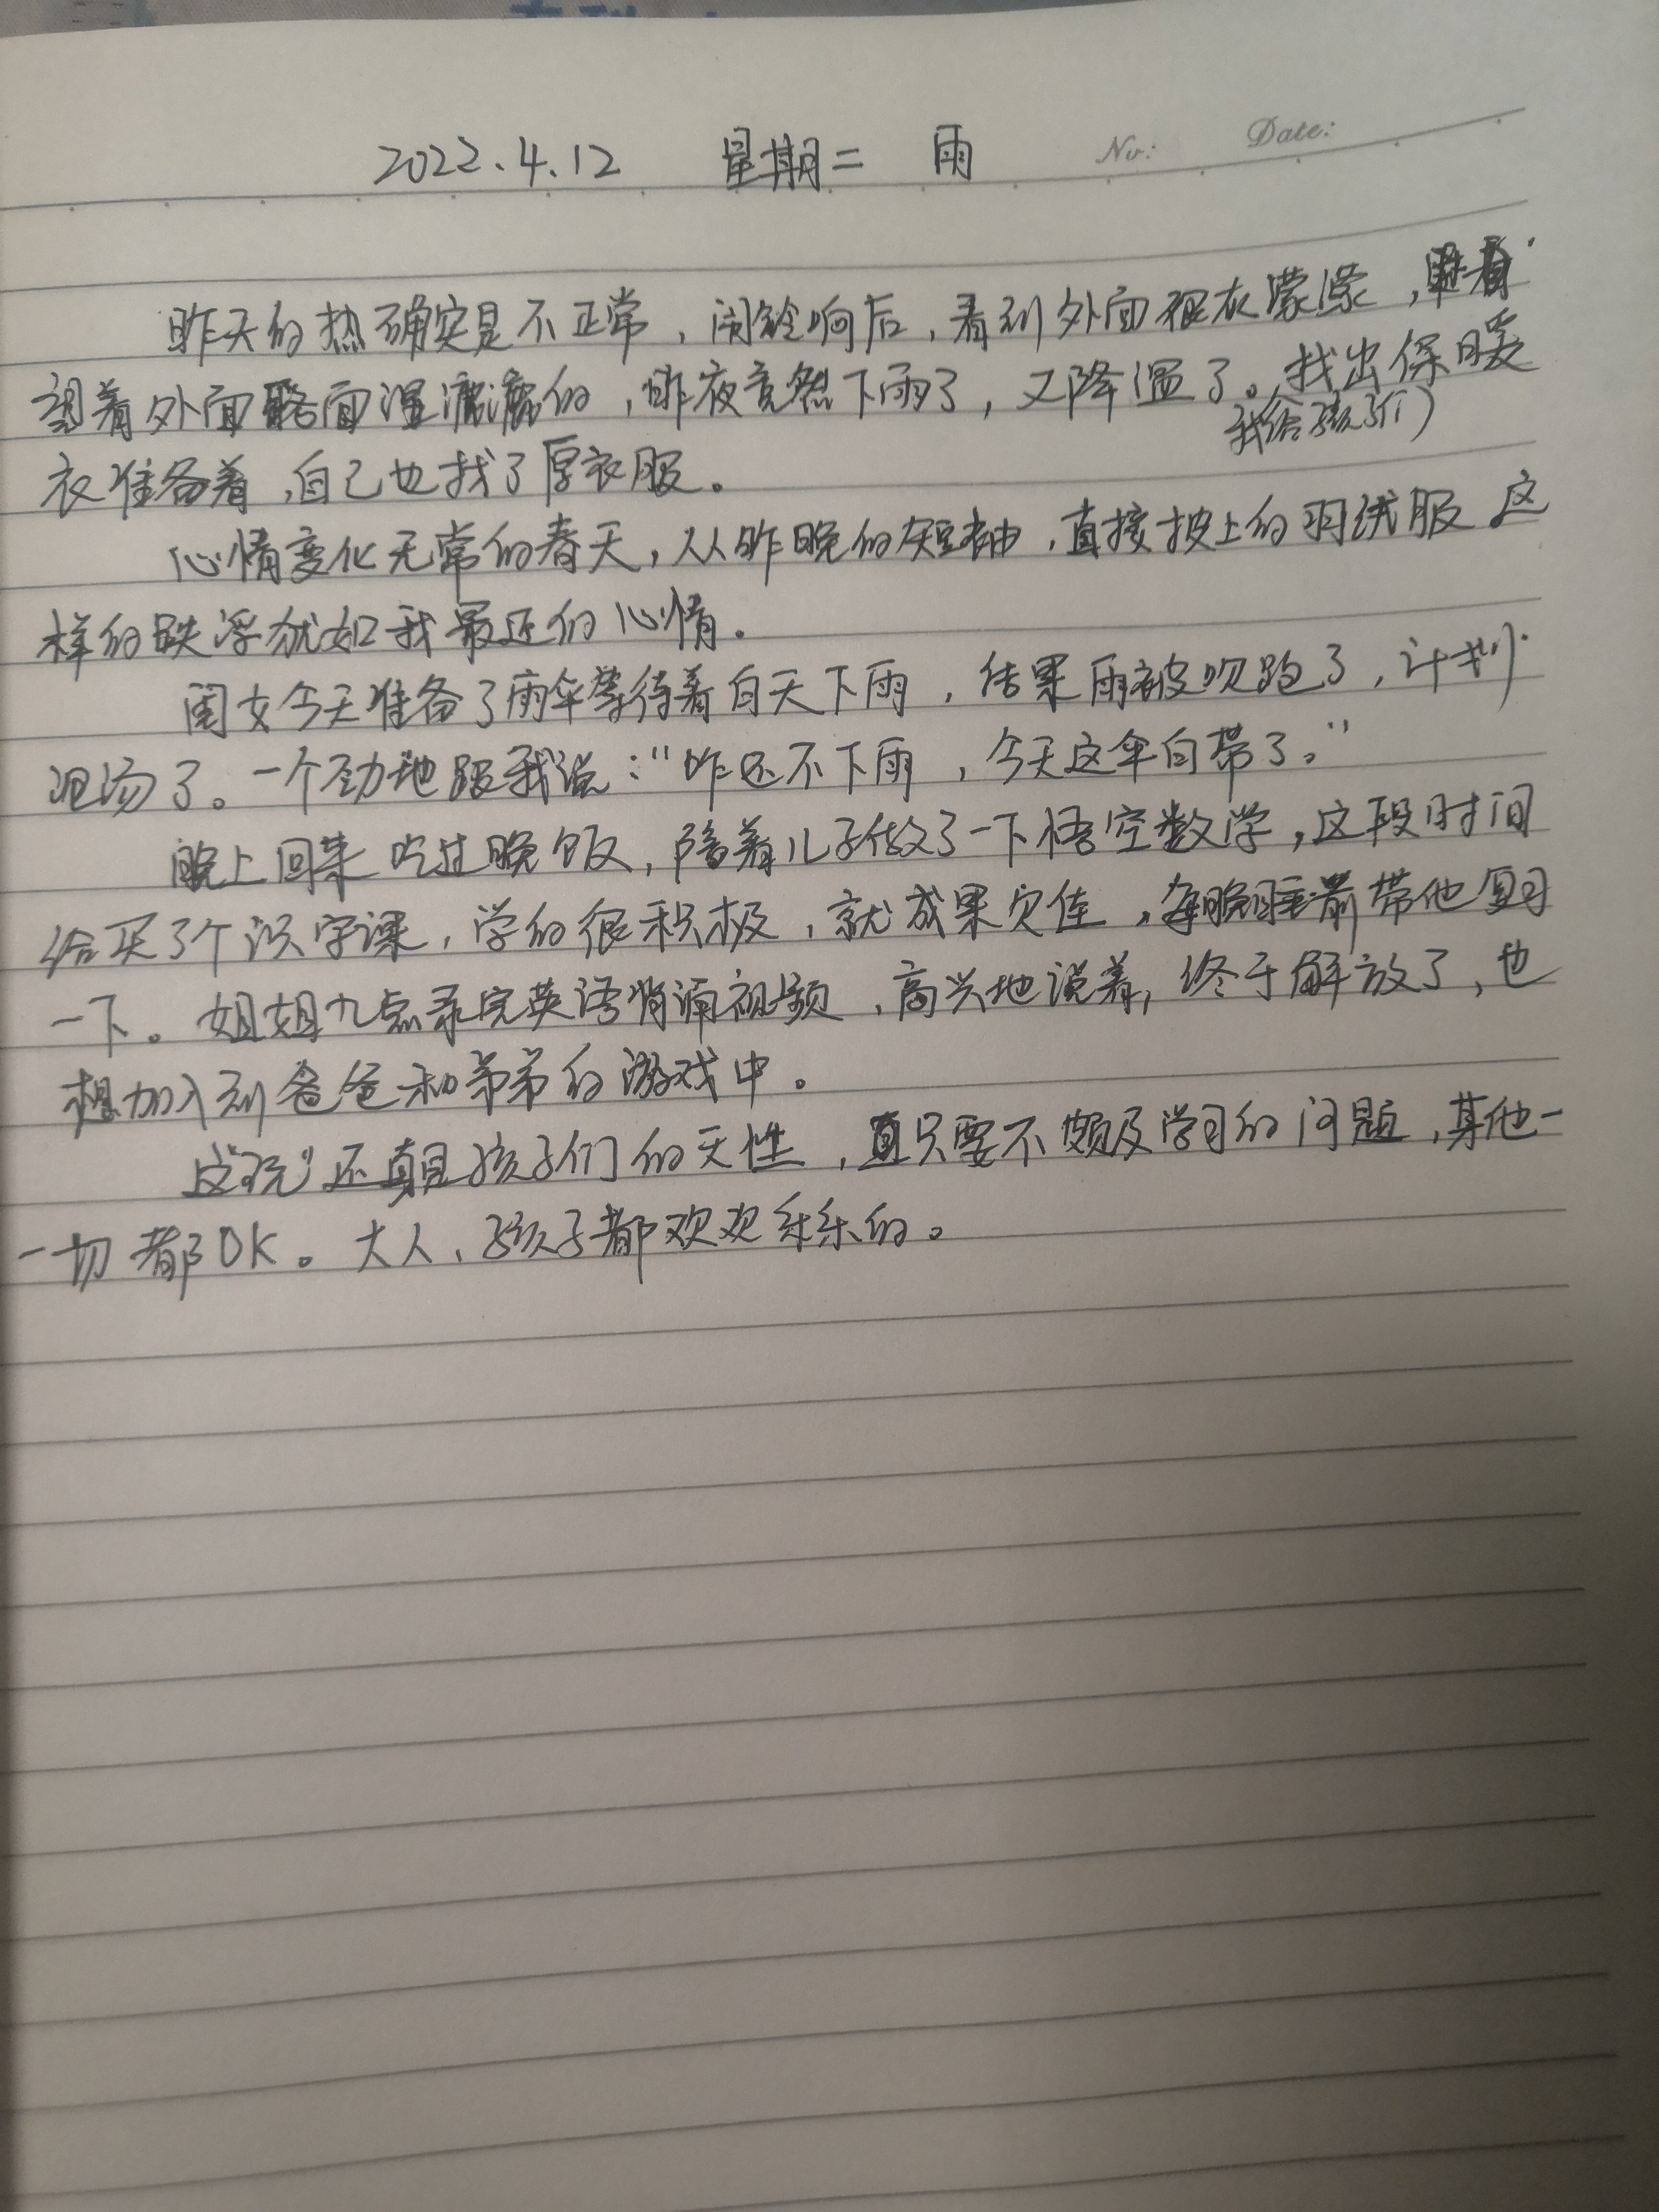 2022.4.12 星期二 雨 No: Date:
昨天的热确实是不正常，闹铃响后，看到外面很灰濛濛，
望着外面路面湿漉漉的，昨夜竟然下雨了，又降温了。找出保暖
我给孩子们
衣准备着，自己也找了厚衣服。
心情变化无常的春天，从昨晚的短袖，直接披上的羽绒服 这
样的跌浮犹如我最近的心情。
闺女今天准备了雨伞等待着白天下雨，结果雨被吹跑了，计划
泡汤了。一个劲地跟我说：“咋还不下雨，今天这伞白带了。”
晚上回来吃过晚饭，陪着儿子做了一下悟空数学，这段时间
给买了个识字课，学的很积极，就成果欠佳，每晚睡前带他复习
一下。姐姐九点录完英语背诵视频，高兴地说着，终于解放了，也
想加入到爸爸和弟弟的游戏中。
还真是孩子们的天性，只要不颇及学习的问题，其他一
一切都OK。大人、孩子都欢欢乐乐的。